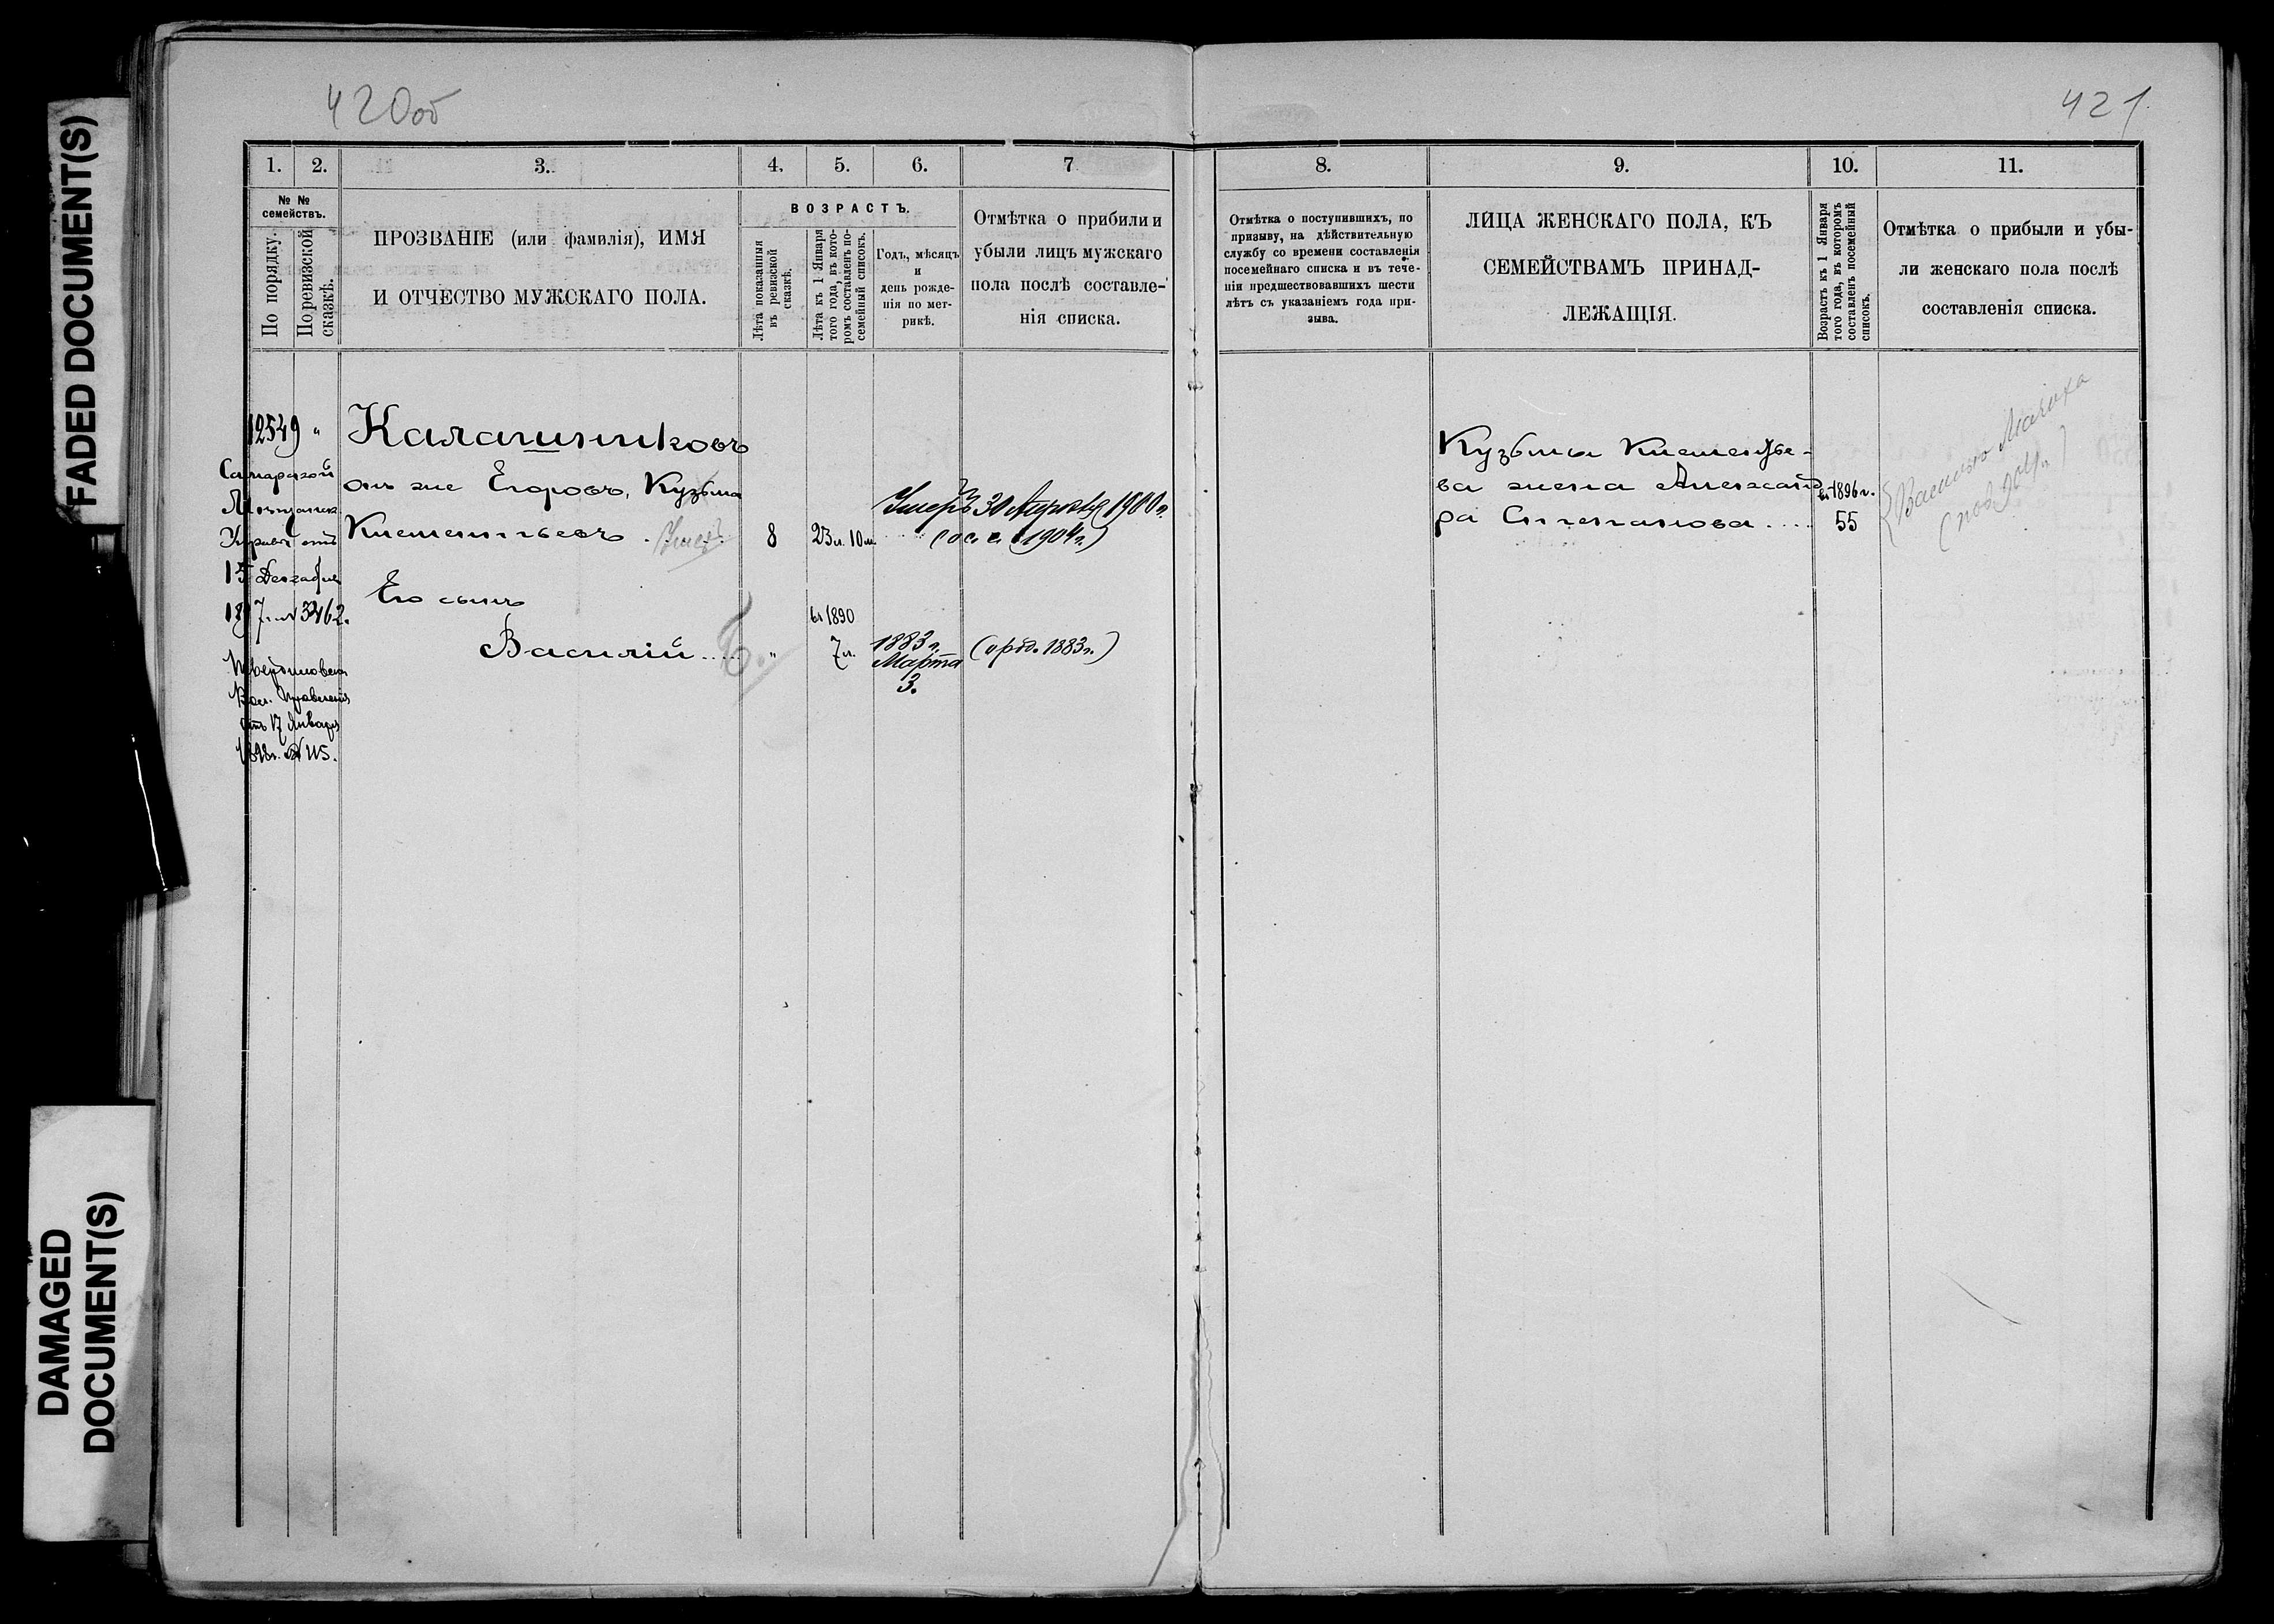 FADED DOCUMENT(S)
DAMAGED
DOCUMENT(S)
420об
1. 2. 3. 4. 5. 6. 7
№ №
семействъ.
По порядку.
По ревизской
сказкѣ.
ПРОЗВАНІЕ (или фамилія), ИМЯ
И ОТЧЕСТВО МУЖСКАГО ПОЛА.
ВОЗРАСТЪ.
Лѣта показанія
въ ревизской
сказкѣ.
Лѣта къ 1 Января
того года, въ кото-
ромъ составленъ по-
семейный списокъ.
Годъ, мѣсяцъ
и
день рожде-
нія по мет-
рикѣ.
Отмѣтка о прибыли и
убыли лицъ мужскаго
пола послѣ составле-
нія списка.
12549 "
Самарской
Мѣщанск.
Управы отъ
15 Декабря
1897 г. №3462.
Вол. Правленія
отъ 17 Января
1898г. № 115.
Калашниковъ
онъ же Егоровъ, Кузьма
Климентьевъ . Умеръ 8 23 л. 10 м.
Умеръ 30 Апрѣля 1900 г.
Его сынъ
Василій ..... " въ 1890
7 л. 1883 г.
Марта
3.
421
8. 9. 10. 11.
Отмѣтка о поступившихъ, по
призыву, на дѣйствительную
службу со времени составленія
посемейнаго списка и въ тече-
ніи предшествовавшихъ шести
лѣтъ съ указаніемъ года при-
зыва.
ЛИЦА ЖЕНСКАГО ПОЛА, КЪ
СЕМЕЙСТВАМЪ ПРИНАД-
ЛЕЖАЩІЯ.
Возрастъ къ 1 Января
того года, въ которомъ
составленъ посемейный
списокъ.
Отмѣтка о прибыли и убы-
ли женскаго пола послѣ
составленія списка.
Кузьмы Климентье-
ва жена Александ
ра Степанова .... въ 1896 г.
55